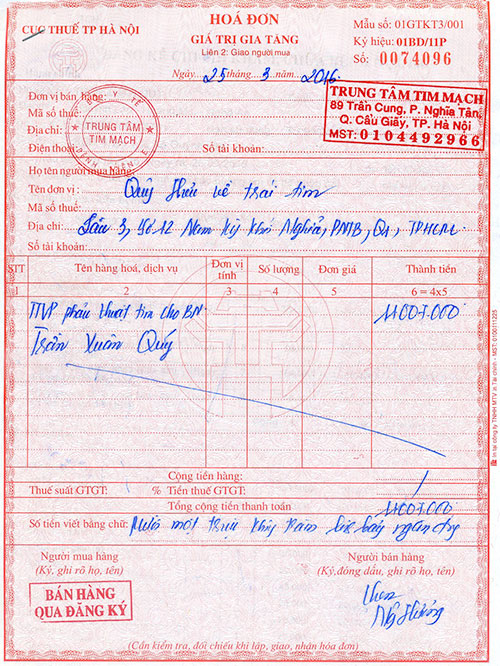 CỤC THUẾ TP HÀ NỘI
HOÁ ĐƠN
GIÁ TRỊ GIA TĂNG
Liên 2: Giao người mua
Mẫu số: 01GTKT3/001
Ký hiệu: 01BD/11P
Số: 0074096
Ngày 25 tháng 3 năm 2016
Đơn vị bán hàng:
Mã số thuế:
Địa chỉ:
Điện thoại: Số tài khoản:
Y TẾ
TRUNG TÂM
TIM MẠCH
BỆNH VIỆN E
TRUNG TÂM TIM MẠCH
89 Trần Cung, P. Nghĩa Tân,
Q. Cầu Giấy, TP. Hà Nội
MST: 0104492966
Họ tên người mua hàng:
Tên đơn vị: Quỹ Hiểu về trái tim
Mã số thuế:
Địa chỉ: Lầu 3, Số 12 Nam Kỳ Khởi Nghĩa, PNTB, Q1, TPHCM
Số tài khoản:
STT Tên hàng hoá, dịch vụ Đơn vị tính Số lượng Đơn giá Thành tiền
1 2 3 4 5 6 = 4x5
TTVP phẫu thuật tim cho BN
Trần Xuân Quý
Cộng tiền hàng: /
Thuế suất GTGT: % Tiền thuế GTGT:
Tổng cộng tiền thanh toán
Số tiền viết bằng chữ: Mười một triệu không trăm bảy ngàn
Người mua hàng
(Ký, ghi rõ họ, tên)
Người bán hàng
(Ký, đóng dấu, ghi rõ họ, tên)
BÁN HÀNG
QUA ĐĂNG KÝ
(Cần kiểm tra, đối chiếu khi lập, giao, nhận hóa đơn)
In tại công ty TNHH MTV in Tài chính - MST: 0100111225